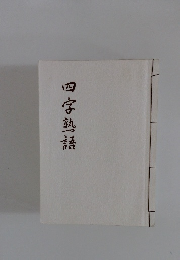 四字熟語